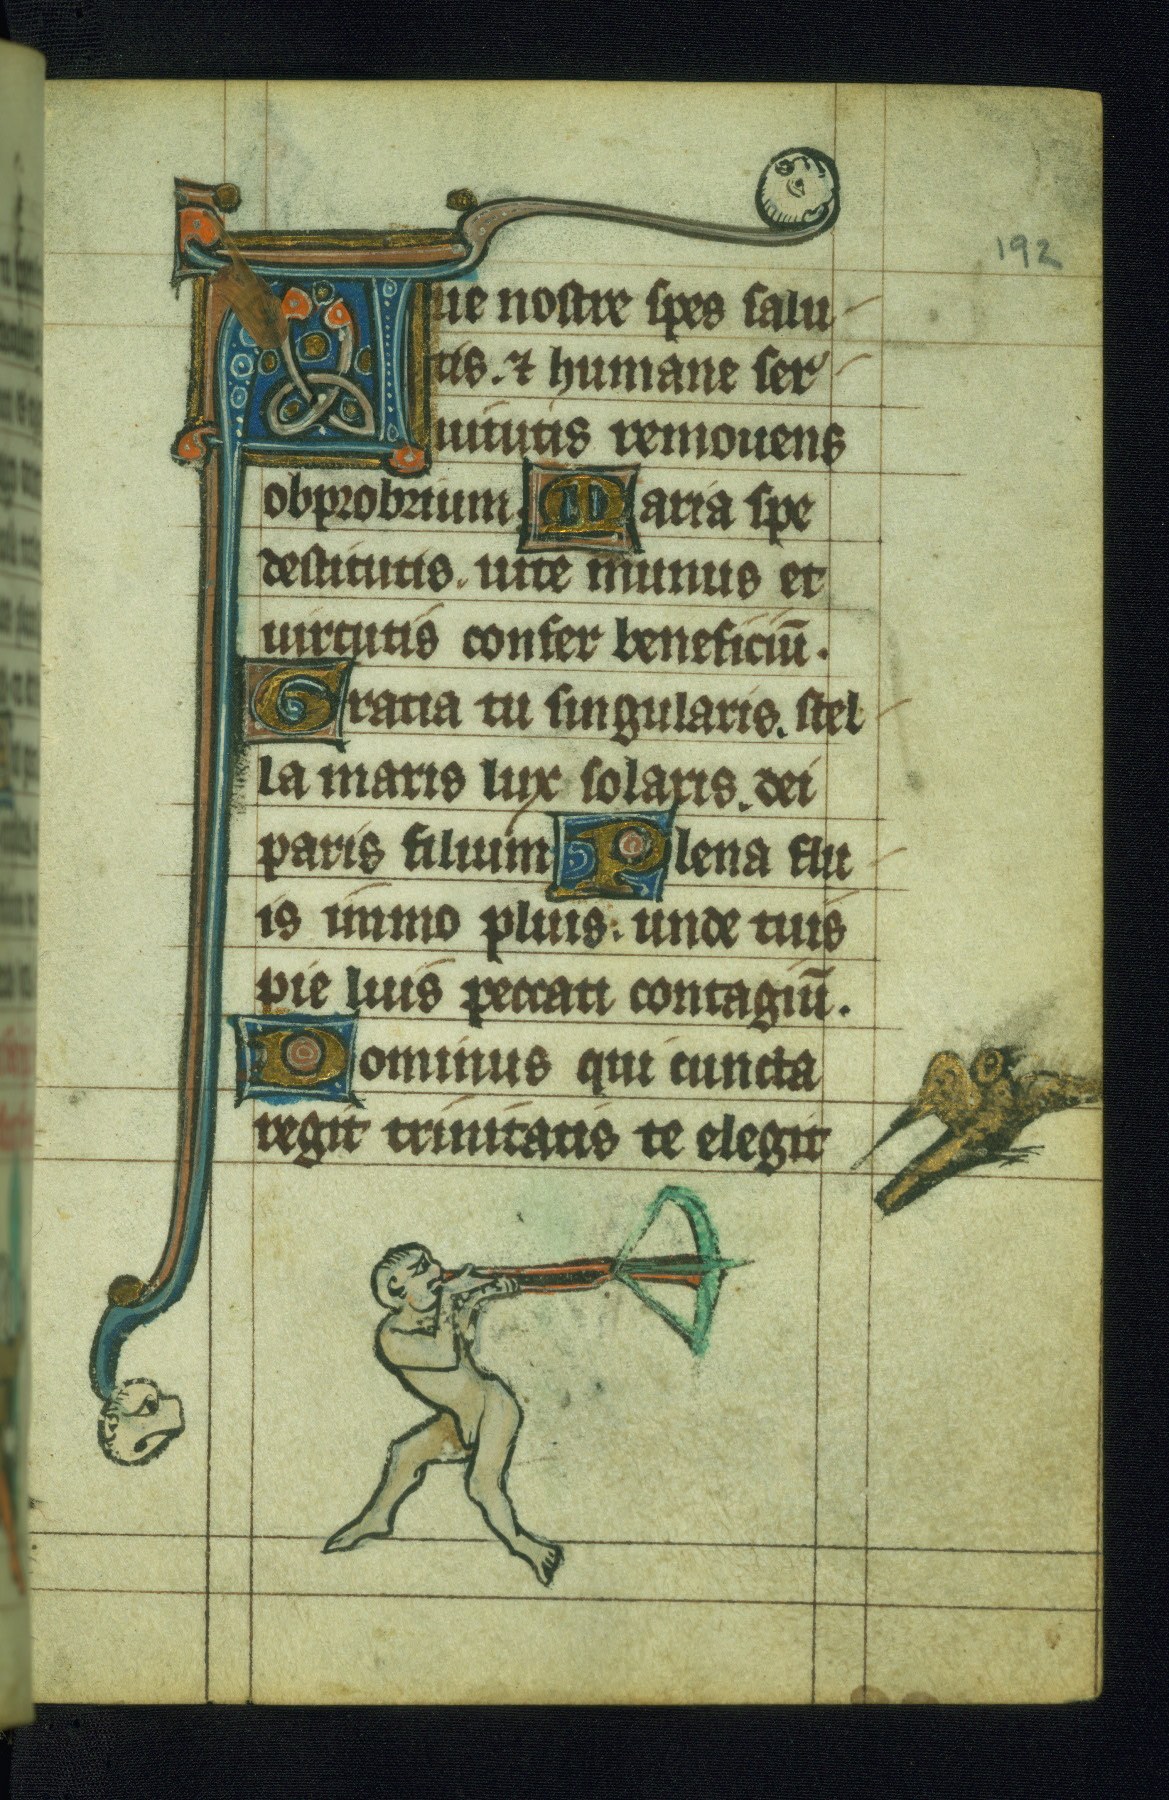 192
Aue nostre spes salu
tis. ⁊ humane ser
uitutis remouens
obprobrium. Maria spe
destitutis. uite munus et
uirtutis confer beneficiū.
Gratia tu singularis. stel
la maris lux solaris. dei
paris filium Plena flu
is immo pluis. unde tuis
pie luis peccati contagiū.
Dominus qui cuncta
regit trinitatis te elegit